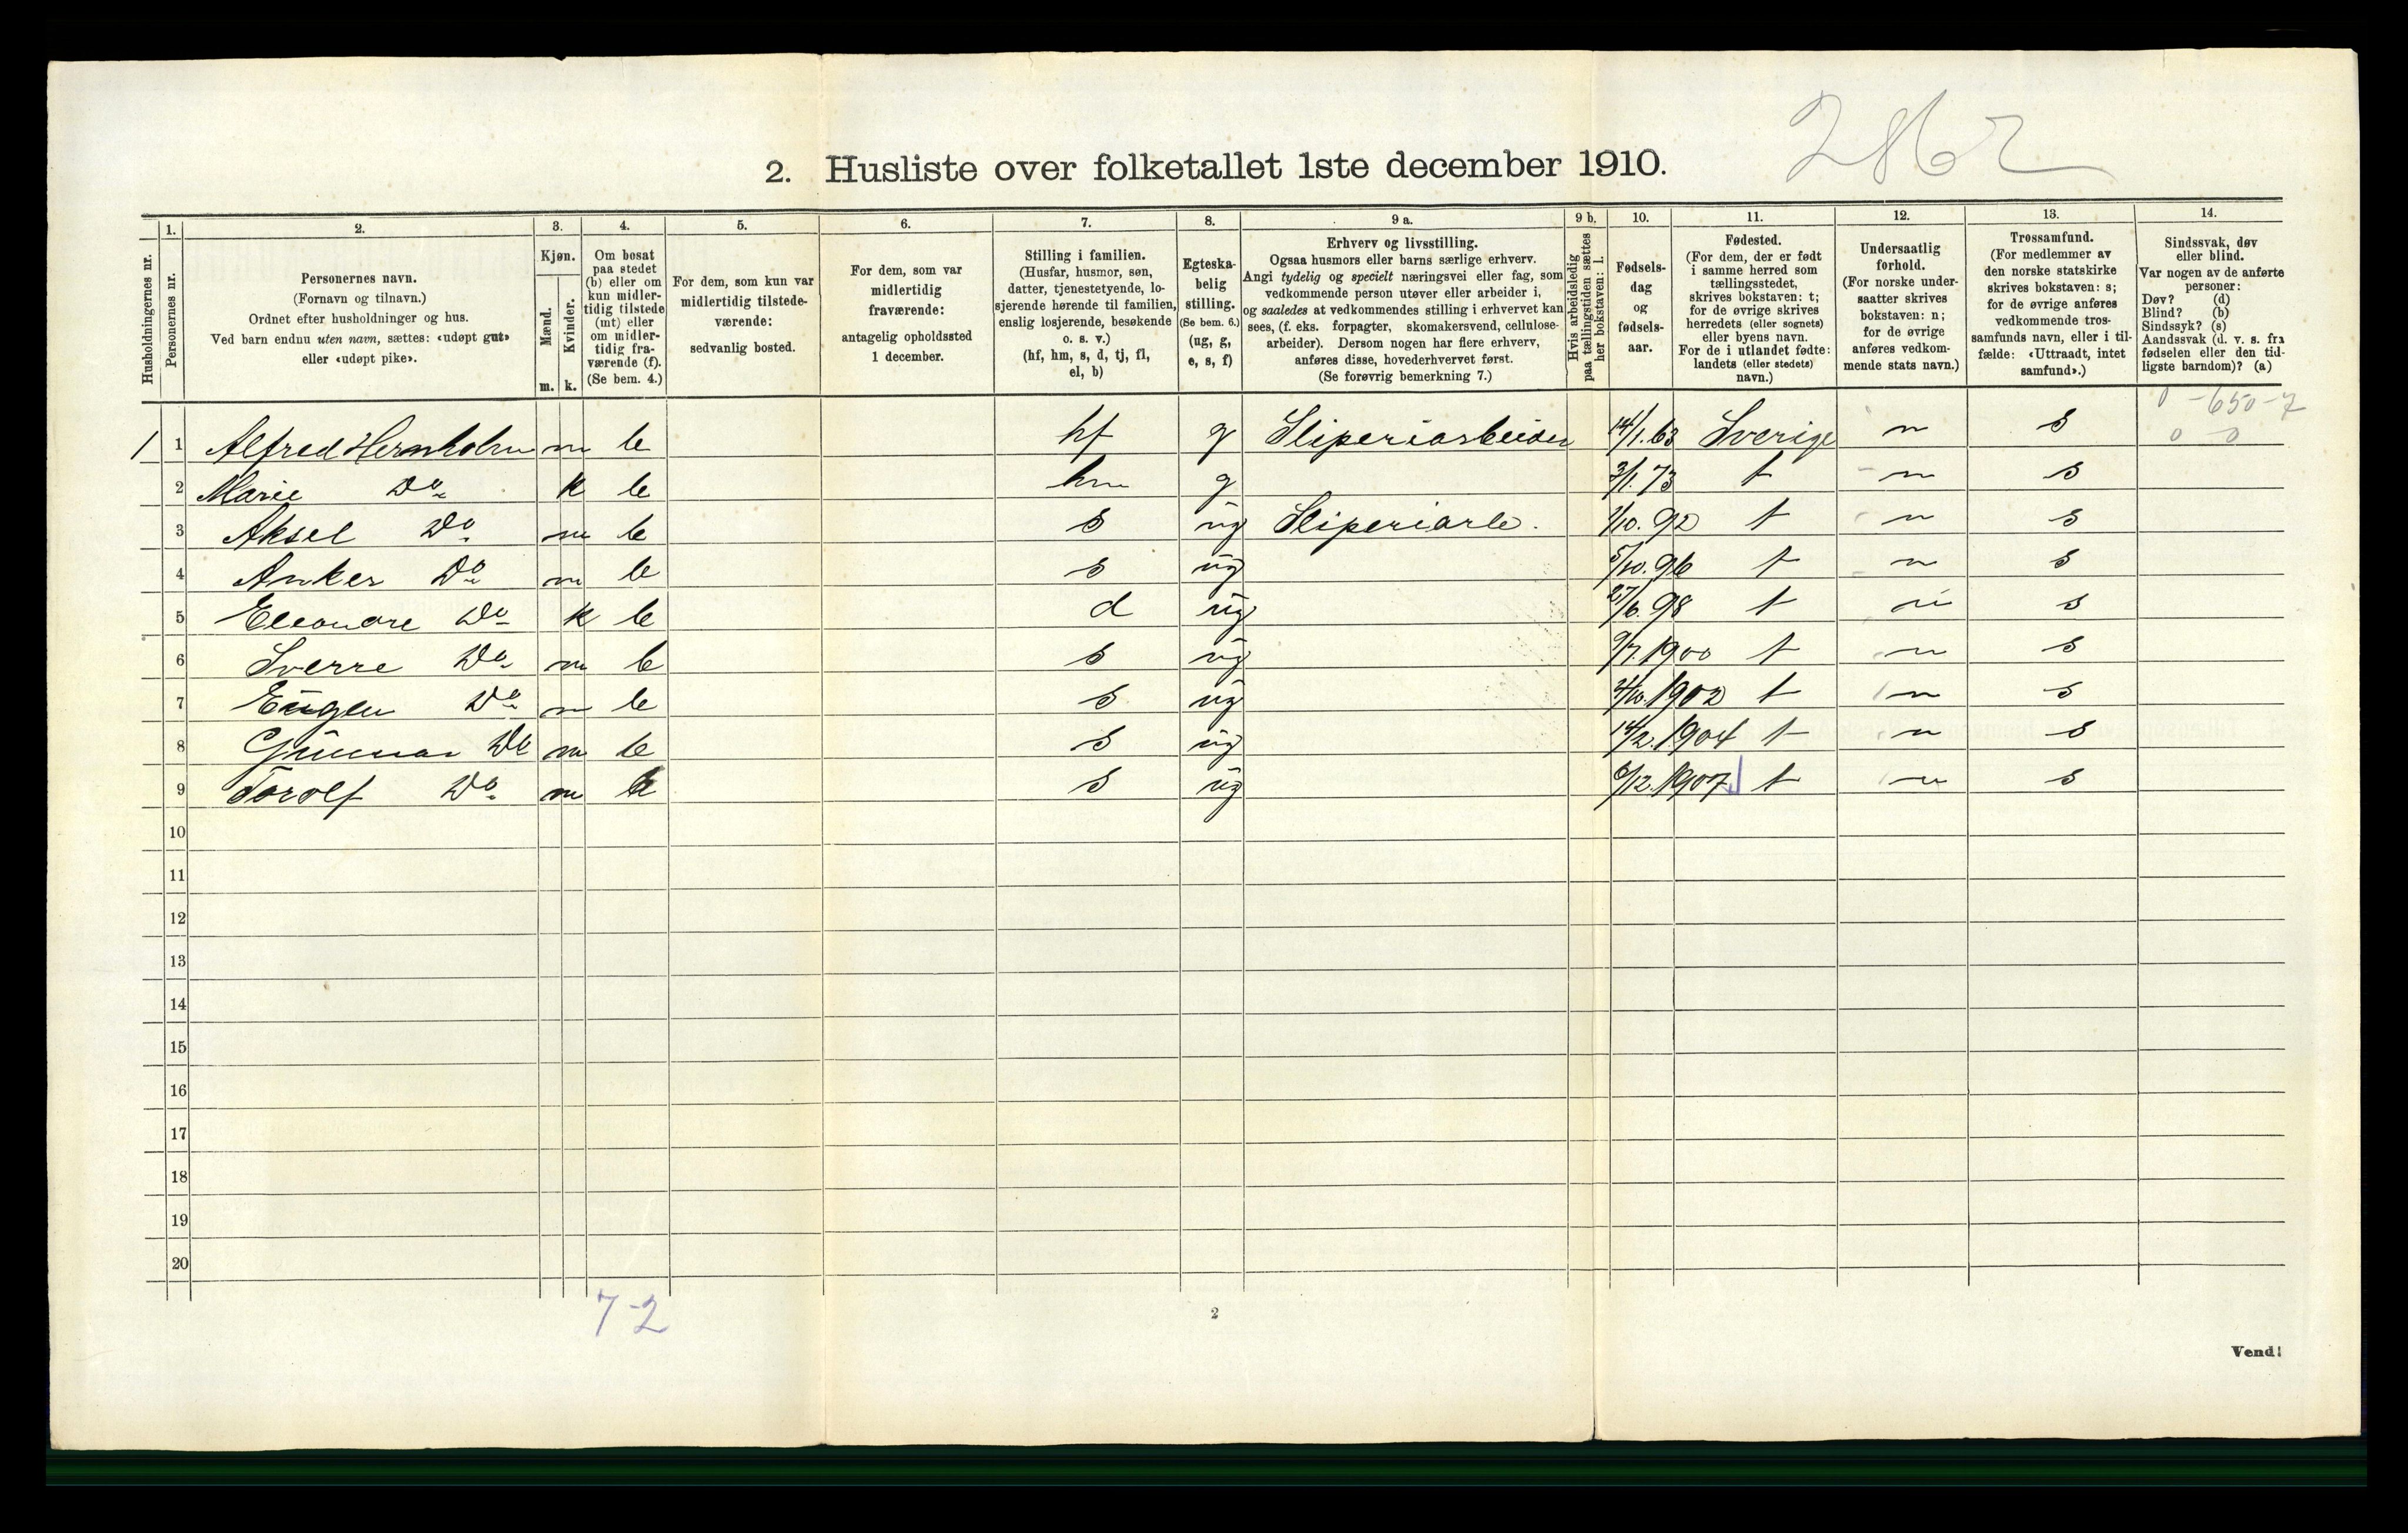 2862
2. Husliste over folketallet 1ste december 1910.
1. 2. 3. 4. 5. 6. 7. 8. 9 a. 9 b. 10. 11. 12. 13. 14.
Husholdningernes nr.
Personernes nr.
Personernes navn.
(Fornavn og tilnavn.)
Ordnet efter husholdninger og hus.
Ved barn endnu uten navn, sættes: «udøpt gut»
eller «udøpt pike».
Kjøn.
Mænd.
Kvinder.
m. k.
Om bosat
paa stedet
(b) eller om
kun midler-
tidig tilstede
(mt) eller
om midler-
tidig fra-
værende (f).
(Se bem. 4.)
For dem, som kun var
midlertidig tilstede-
værende:
sedvanlig bosted.
For dem, som var
midlertidig
fraværende:
antagelig opholdssted
1 december.
Stilling i familien.
(Husfar, husmor, søn,
datter, tjenestetyende, lo-
sjerende hørende til familien,
enslig losjerende, besøkende
o. s. v.)
(hf, hm, s, d, tj, fl,
el, b)
Egteska-
belig
stilling.
(Se bem. 6.)
(ug, g,
e, s, f)
Erhverv og livsstilling.
Ogsaa husmors eller barns særlige erhverv.
Angi tydelig og specielt næringsvei eller fag, som
vedkommende person utøver eller arbeider i,
og saaledes at vedkommendes stilling i erhvervet kan
sees, (f. eks. forpagter, skomakersvend, cellulose-
arbeider). Dersom nogen har flere erhverv,
anføres disse, hovederhvervet først.
(Se forøvrig bemerkning 7.)
Hvis arbeidsledig
paa tællingstiden sættes
her bokstaven: l.
Fødsels-
dag
og
fødsels-
aar.
Fødested.
(For dem, der er født
i samme herred som
tællingsstedet,
skrives bokstaven: t;
for de øvrige skrives
herredets (eller sognets)
eller byens navn.
For de i utlandet fødte:
landets (eller stedets)
navn.)
Undersaatlig
forhold.
(For norske under-
saatter skrives
bokstaven: n;
for de øvrige
anføres vedkom-
mende stats navn.)
Trossamfund.
(For medlemmer av
den norske statskirke
skrives bokstaven: s;
for de øvrige anføres
vedkommende tros-
samfunds navn, eller i til-
fælde: «Uttraadt, intet
samfund».)
Sindssvak, døv
eller blind.
Var nogen av de anførte
personer:
Døv? (d)
Blind? (b)
Sindssyk? (s)
Aandssvak (d. v. s. fra
fødselen eller den tid-
ligste barndom)? (a)
0 - 650 - 7
0 0
1 1 Alfred Hernholm m b hf g Sliperiarbeider 14/1.63 Sverige n s
2 Marie Do k b hm g 3/1.73 t n s
3 Aksel Do m b s ug Sliperiarb. 1/10.92 t n s
4 Anker Do m b s ug 5/10.96 t n s
5 Eleonore Do k b d ug 27/6.98 t n s
6 Sverre Do m b s ug 9/7.1900 t n s
7 Eugen Do m b s ug 4/10.1902 t n s
8 Gunnar Do m b s ug 14/2.1904 t n s
9 Torolf Do m b s ug 6/12.1907 t n s
10
11
12
13
14
15
16
17
18
19
20
7-2
2
Vend!